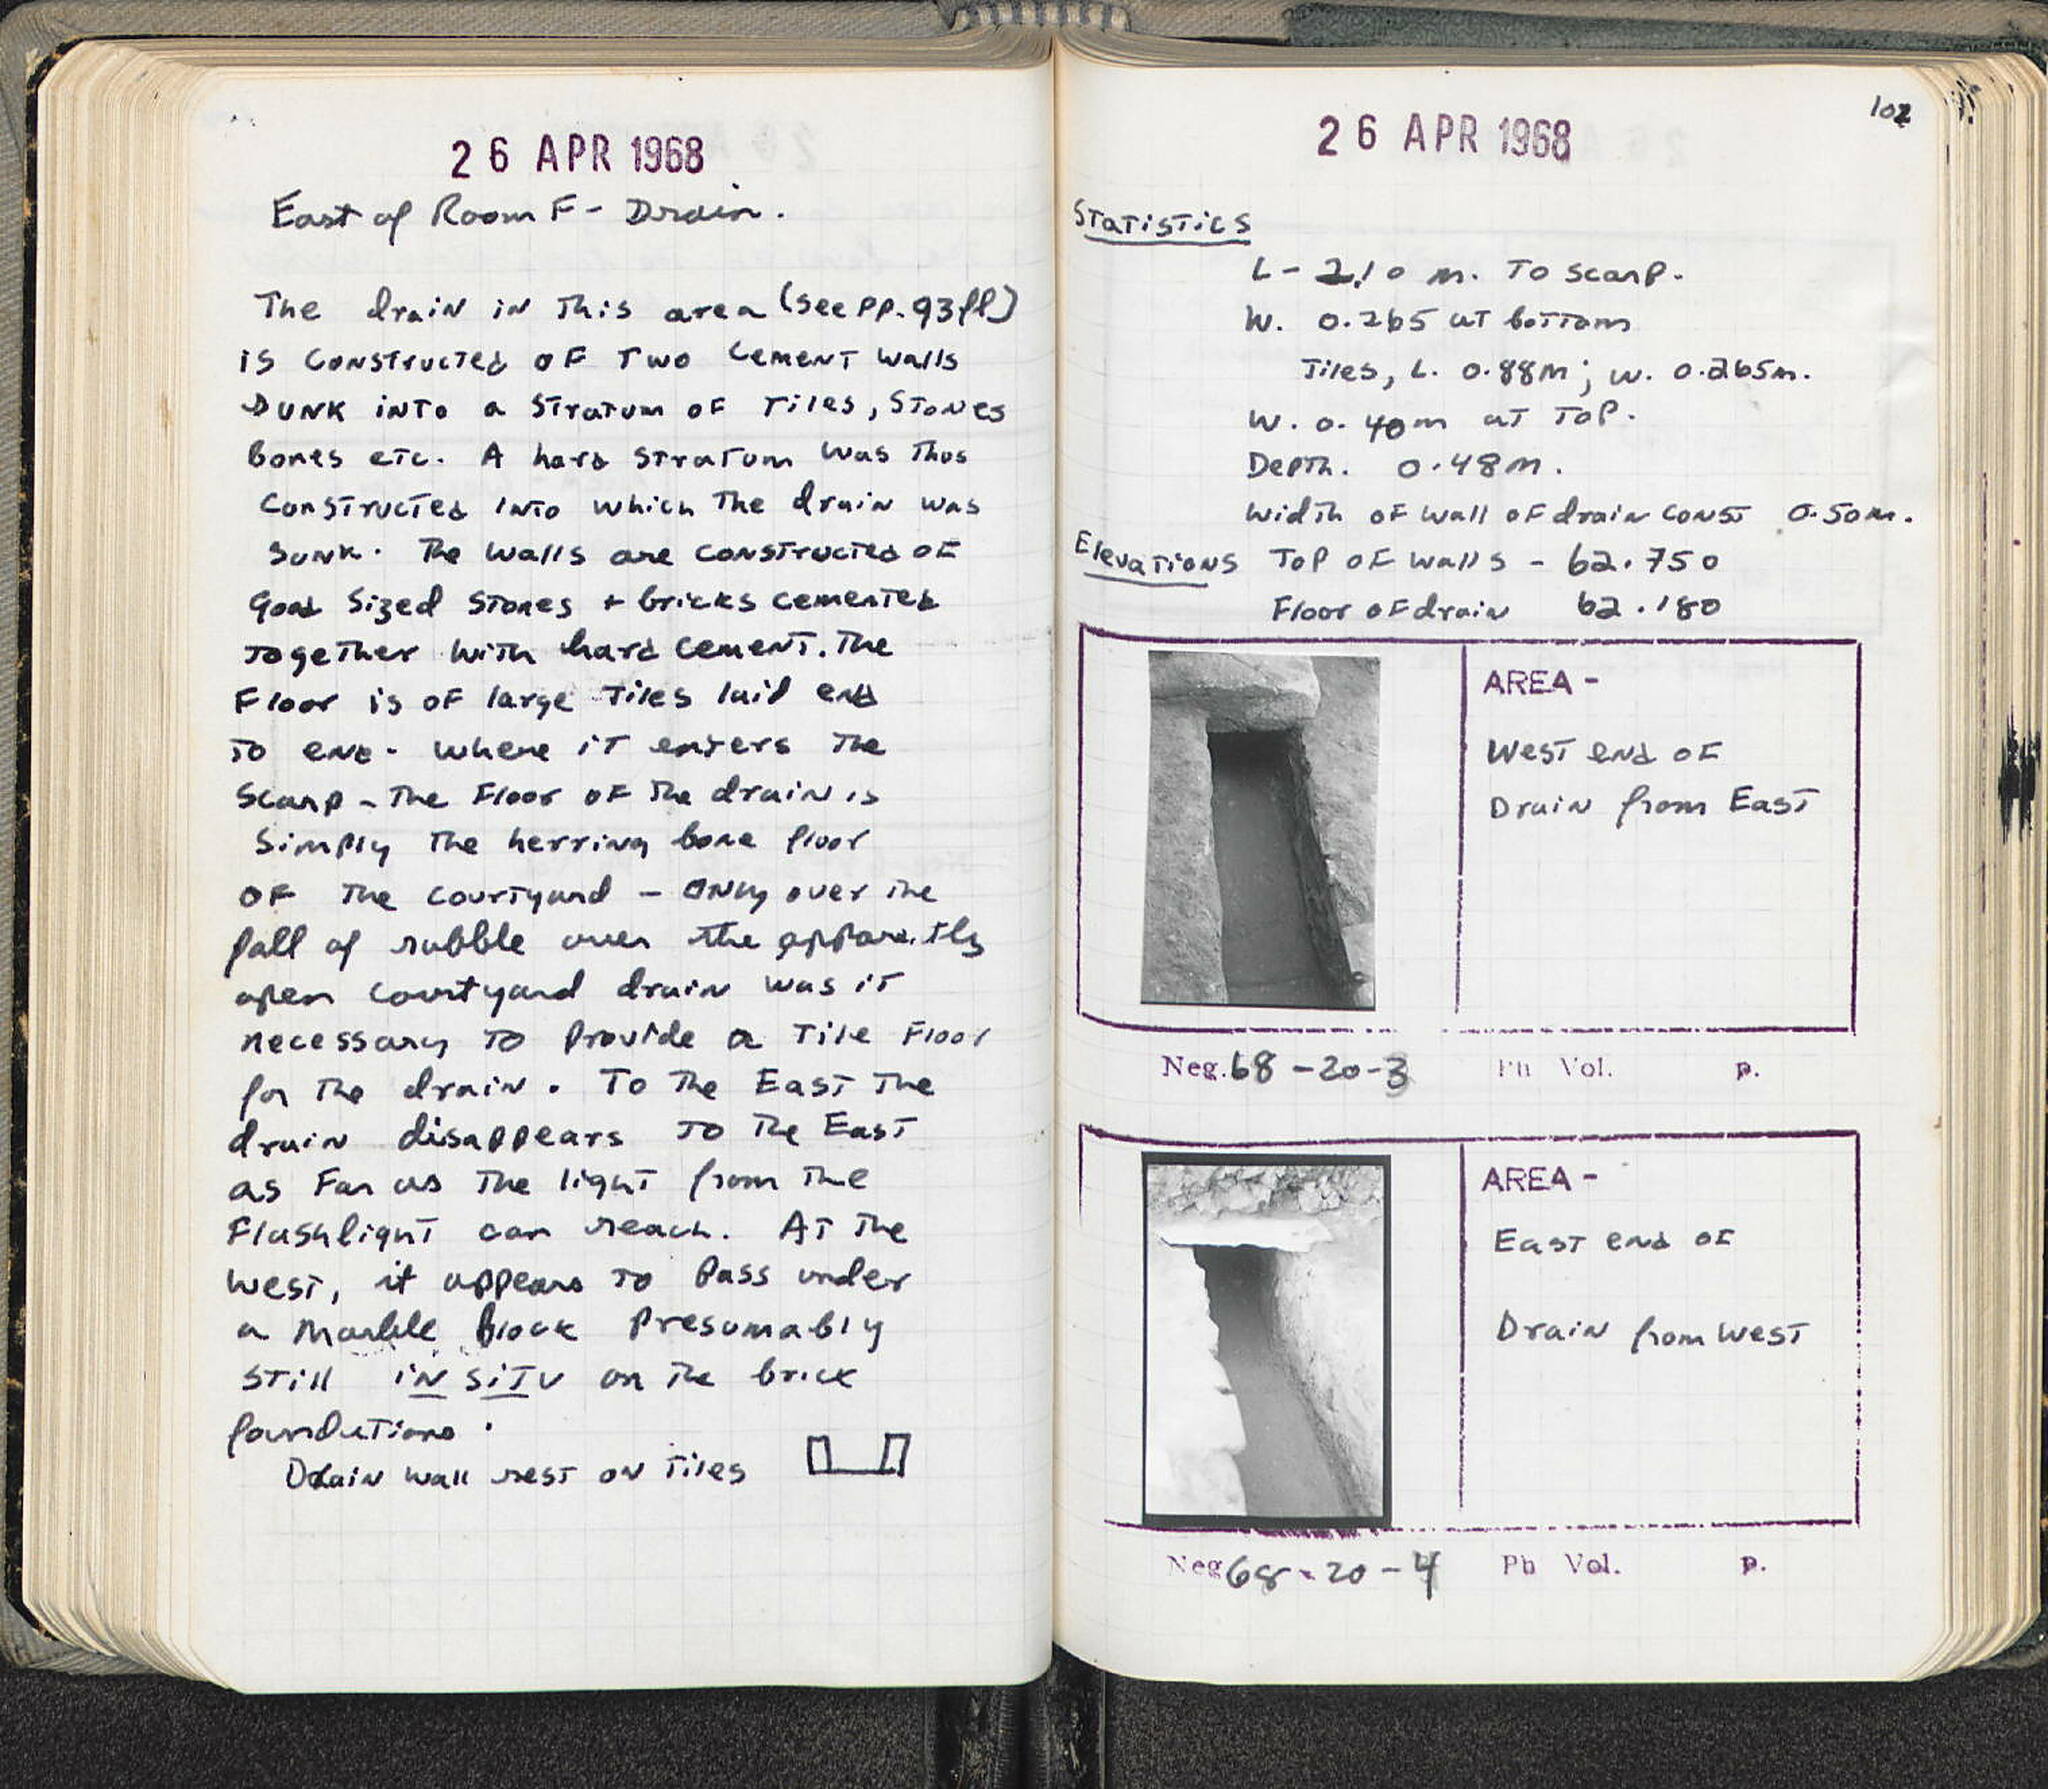 26 APR 1968
East of Room F - Drain.
The drain in this area (see pp. 93ff)
is constructed of two cement walls
sunk into a stratum of tiles, stones
bones etc. A hard stratum was thus
constructed into which the drain was
sunk. The walls are constructed of
good sized stones + bricks cemented
together with hard cement. The
Floor is of large tiles laid end
to end. Where it enters the
scarp - the Floor of the drain is
simply the herring bone floor
of the courtyard - only over the
fall of rubble over the apparently
open courtyard drain was it
necessary to provide a tile Floor
for the drain. To the East the
drain disappears to the East
as Far as the light from the
Flashlight can reach. At the
West, it appears to pass under
a marble block presumably
still in situ on the brick
foundations.
Drain wall rest on tiles
102
26 APR 1968
Statistics
L - 2.10 m. to scarp.
W. 0.265 at bottom
Tiles, L. 0.88m; w. 0.265m.
W. 0.40m at top.
Depth. 0.48m.
Width of wall of drain const 0.50m.
Elevations Top of walls - 62.750
Floor of drain 62.180
AREA -
West end of
Drain from East
Neg. 68-20-3 Ph Vol. p.
AREA -
East end of
Drain from West
Neg 68-20-4 Ph Vol. p.